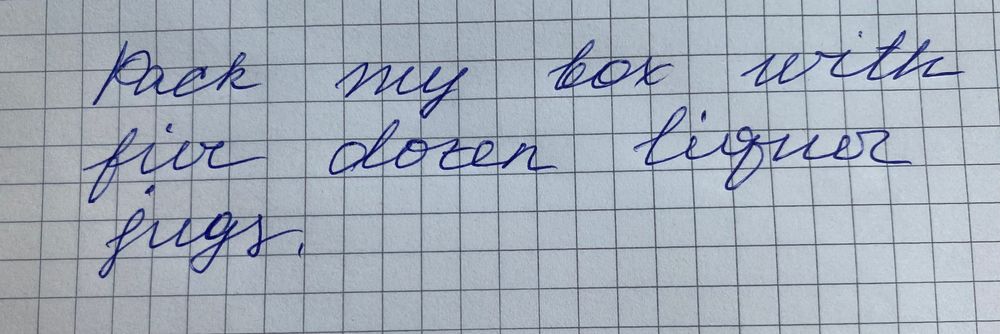 Pack my box with
five dozen liquor
jugs.